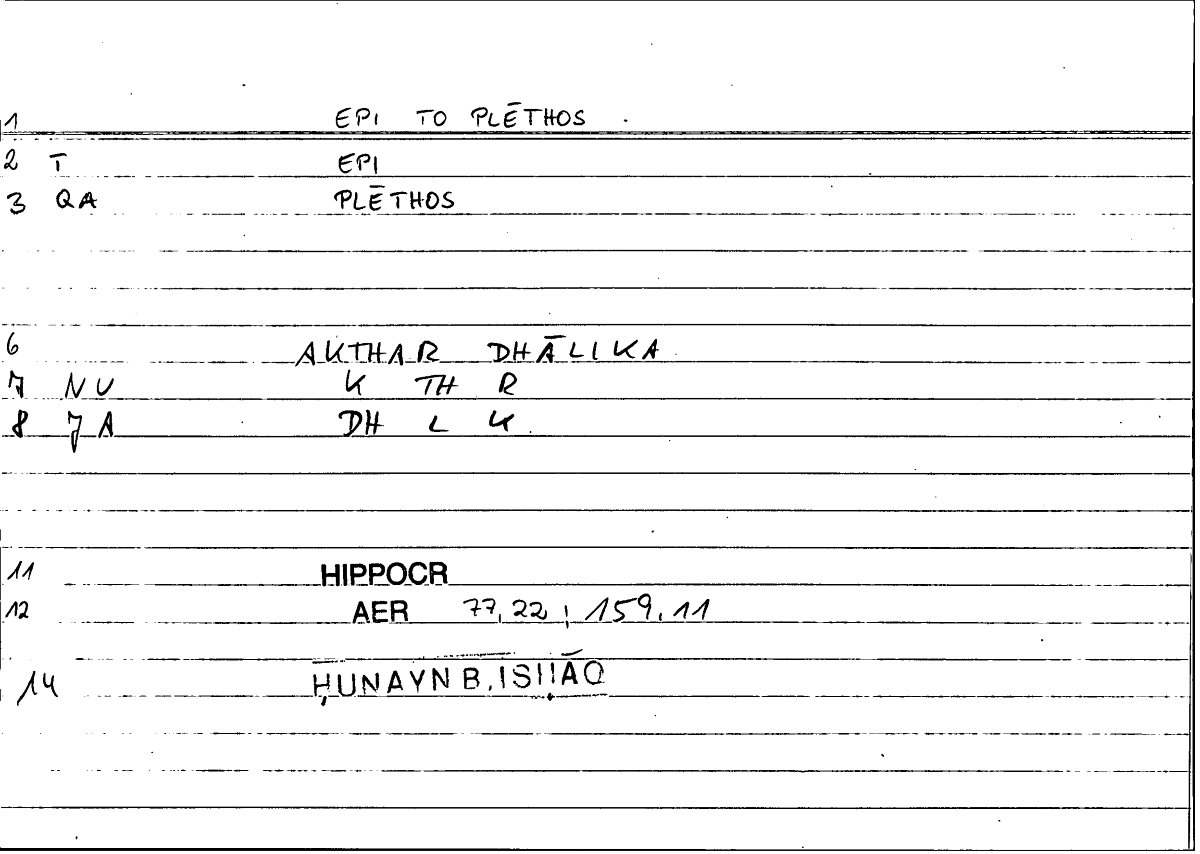 1 EPI TO PLĒTHOS
2 T EPI
3 QA PLĒTHOS
6 AKTHAR DHĀLIKA
7 NU K TH R
8 JA DH L K
11 HIPPOCR
12 AER 77,22 ; 159,11
14 ḤUNAYN B. ISḤĀQ